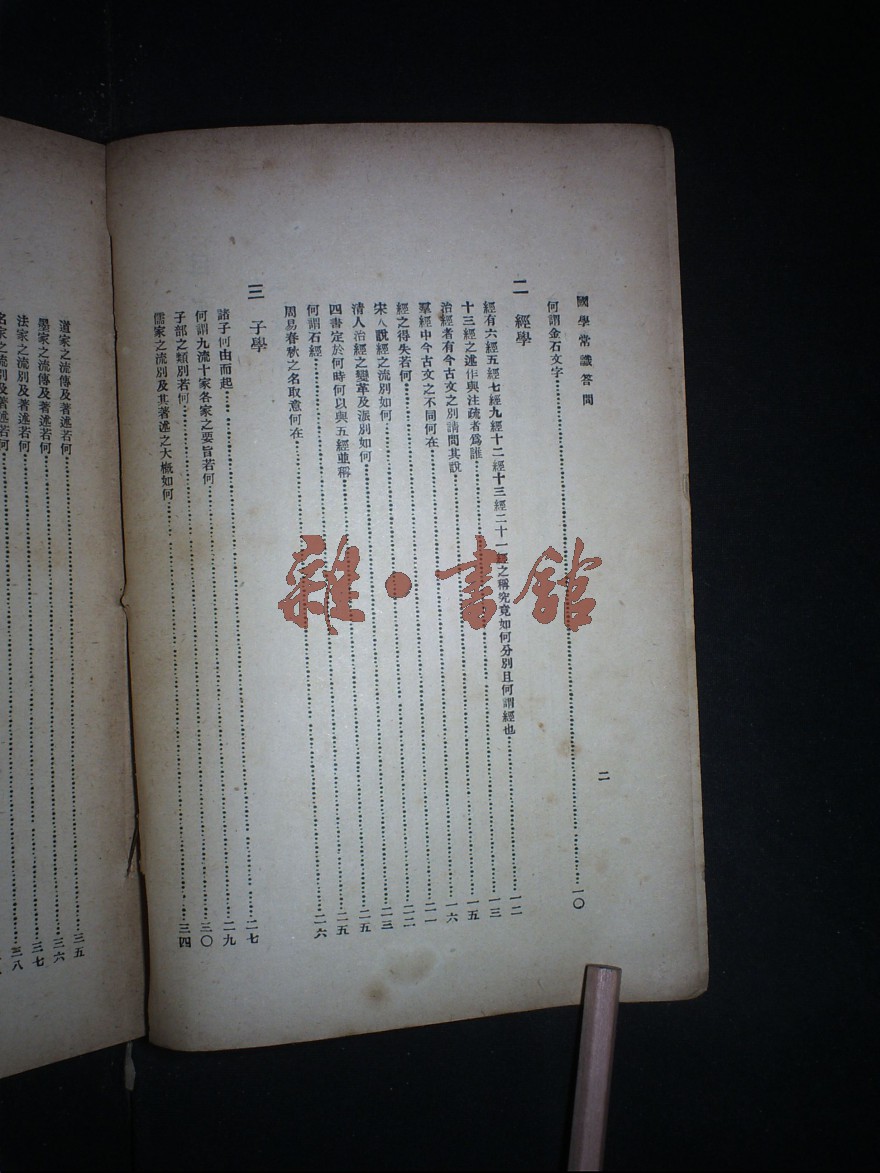 國學常識答問 二
何謂金石文字……一〇
二 經學
經有六經五經七經九經十二經十三經二十一經之稱究竟如何分別且何謂經也……一二
十三經之述作與注疏者爲誰……一三
治經者有今古文之別請問其說……一五
羣經中今古文之不同何在……一六
經之得失若何……二一
宋人說經之流別如何……二二
清人治經之變革及派別如何……二三
四書定於何時何以與五經並稱……二五
何謂石經……二五
周易春秋之名取意何在……二六
三 子學
諸子何由而起……二七
何謂九流十家各家之要旨若何……二九
子部之類別若何……三〇
儒家之流別及其著述之大槪如何……三四
道家之流傳及著述若何……三五
墨家之流傳及著述若何……三六
法家之流別及著述若何……三七
名家之流別及著述若何……三八
雜·書館